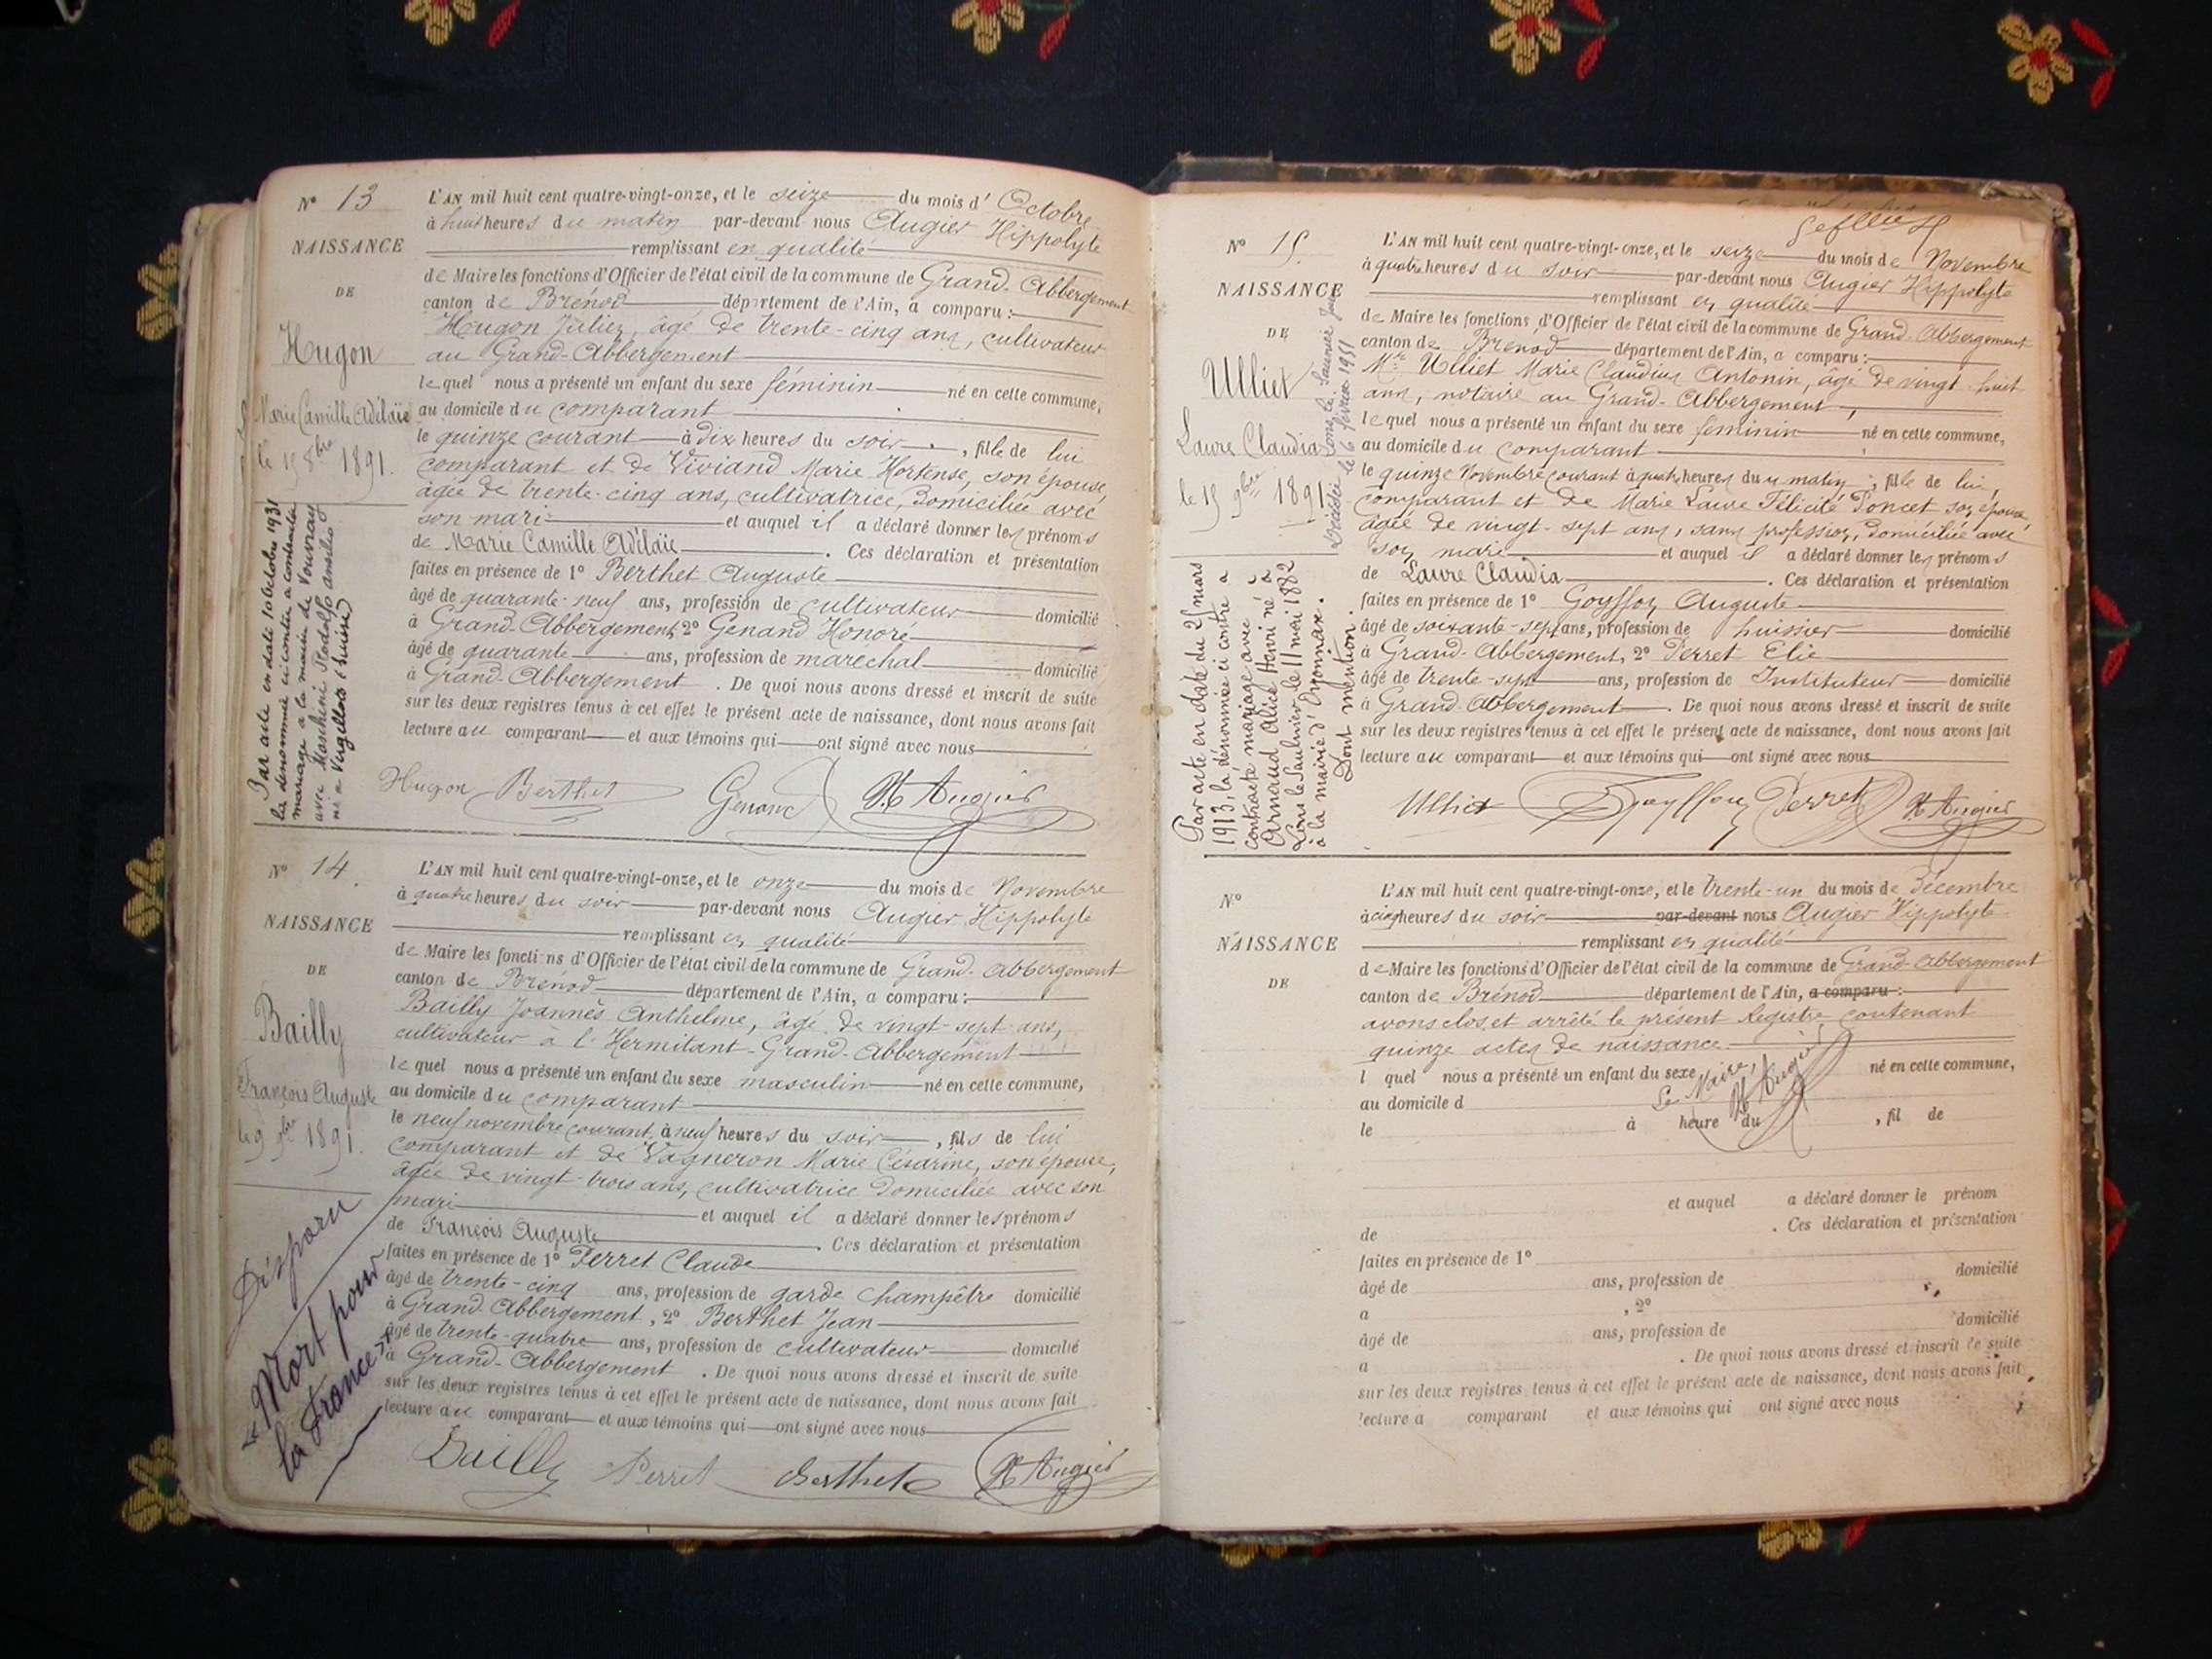 N° 13
NAISSANCE
DE
Hugon
Marie Camille Adélaïe
le 15 8bre 1891.
Par acte en date 10 octobre 1931
la dénommée ci contre a contracté
mariage à la mairie de Vouvray
avec Maschini Rodolfo
né à Vergillois (Suisse)
L'AN mil huit cent quatre-vingt-onze, et le seize du mois d' Octobre
à huit heures du matin par-devant nous Augier Hippolyte
remplissant en qualité
de Maire les fonctions d'Officier de l'état civil de la commune de Grand-Abbergement
canton de Brénod département de l'Ain, a comparu :
Hugon Julien, âgé de trente-cinq ans, cultivateur
au Grand-Abbergement
lequel nous a présenté un enfant du sexe féminin né en cette commune,
au domicile du comparant
le quinze courant à dix heures du soir, fille de lui
comparant et de Viviand Marie Hortense, son épouse,
âgée de trente-cinq ans, cultivatrice, domiciliée avec
son mari et auquel il a déclaré donner les prénoms
de Marie Camille Adélaïe. Ces déclaration et présentation
faites en présence de 1° Berthet Auguste
âgé de quarante-neuf ans, profession de cultivateur domicilié
à Grand-Abbergement, 2° Genand Honoré
âgé de quarante ans, profession de maréchal domicilié
à Grand-Abbergement. De quoi nous avons dressé et inscrit de suite
sur les deux registres tenus à cet effet le présent acte de naissance, dont nous avons fait
lecture au comparant et aux témoins qui ont signé avec nous
Hugon Berthet Genand H Augier
N° 14.
NAISSANCE
DE
Bailly
François Auguste
le 9 9bre 1891.
Disparu
« Mort pour
la France »
L'AN mil huit cent quatre-vingt-onze, et le onze du mois de Novembre
à quatre heures du soir par-devant nous Augier Hippolyte
remplissant en qualité
de Maire les fonctions d'Officier de l'état civil de la commune de Grand-Abbergement
canton de Brénod département de l'Ain, a comparu :
Bailly Joannès Anthelme, âgé de vingt-sept ans,
cultivateur à l'Hermitant-Grand-Abbergement
lequel nous a présenté un enfant du sexe masculin né en cette commune,
au domicile du comparant
le neuf novembre courant, à neuf heures du soir, fils de lui
comparant et de Vagneron Marie Césarine, son épouse,
âgée de vingt-trois ans, cultivatrice domiciliée avec son
mari et auquel il a déclaré donner les prénoms
de François Auguste. Ces déclaration et présentation
faites en présence de 1° Perret Claude
âgé de trente-cinq ans, profession de garde champêtre domicilié
à Grand-Abbergement, 2° Berthet Jean
âgé de trente-quatre ans, profession de cultivateur domicilié
à Grand-Abbergement. De quoi nous avons dressé et inscrit de suite
sur les deux registres tenus à cet effet le présent acte de naissance, dont nous avons fait
lecture au comparant et aux témoins qui ont signé avec nous
Bailly Perret Berthet H Augier
N° 15.
NAISSANCE
DE
Ulliet
Laure Claudia
le 15 9bre 1891
Décédée Lons le Saunier Jura
le 6 février 1951
Par acte en date du 25 mars
1913, la dénommée ci contre a
contracté mariage avec
Arnaud Alice Henri né à
Lons le Saulnier, le 11 mai 1882
à la mairie d'Oyonnax.
Dont mention.
L'AN mil huit cent quatre-vingt-onze, et le seize du mois de Novembre
à quatre heures du soir par-devant nous Augier Hippolyte
remplissant en qualité
de Maire les fonctions d'Officier de l'état civil de la commune de Grand-Abbergement
canton de Brénod département de l'Ain, a comparu :
Me Ulliet Marie Claudius Antonin, âgé de vingt-huit
ans, notaire au Grand-Abbergement,
lequel nous a présenté un enfant du sexe féminin né en cette commune,
au domicile du comparant
le quinze Novembre courant à quatre heures du matin, fille de lui,
comparant et de Marie Laure Félicité Poncet son épouse,
âgée de vingt-sept ans, sans profession, domiciliée avec
son mari et auquel il a déclaré donner les prénoms
de Laure Claudia. Ces déclaration et présentation
faites en présence de 1° Goyffon Auguste
âgé de soixante-sept ans, profession de huissier domicilié
à Grand-Abbergement, 2° Perret Elie
âgé de trente-sept ans, profession de Instituteur domicilié
à Grand-Abbergement. De quoi nous avons dressé et inscrit de suite
sur les deux registres tenus à cet effet le présent acte de naissance, dont nous avons fait
lecture au comparant et aux témoins qui ont signé avec nous
Ulliet Goyffon Perret H Augier
N°
NAISSANCE
DE
L'AN mil huit cent quatre-vingt-onze, et le trente-un du mois de Décembre
à cinq heures du soir par-devant nous Augier Hippolyte
remplissant en qualité
de Maire les fonctions d'Officier de l'état civil de la commune de Grand-Abbergement
canton de Brénod département de l'Ain, a comparu :
avons clos et arrêté le présent Registre contenant
quinze actes de naissance.
l quel nous a présenté un enfant du sexe né en cette commune,
Le Maire,
H Augier
au domicile d
le à heure du , fil de
et auquel a déclaré donner le prénom
de . Ces déclaration et présentation
faites en présence de 1°
âgé de ans, profession de domicilié
a , 2°
âgé de ans, profession de domicilié
a . De quoi nous avons dressé et inscrit de suite
sur les deux registres tenus à cet effet le présent acte de naissance, dont nous avons fait
lecture a comparant et aux témoins qui ont signé avec nous